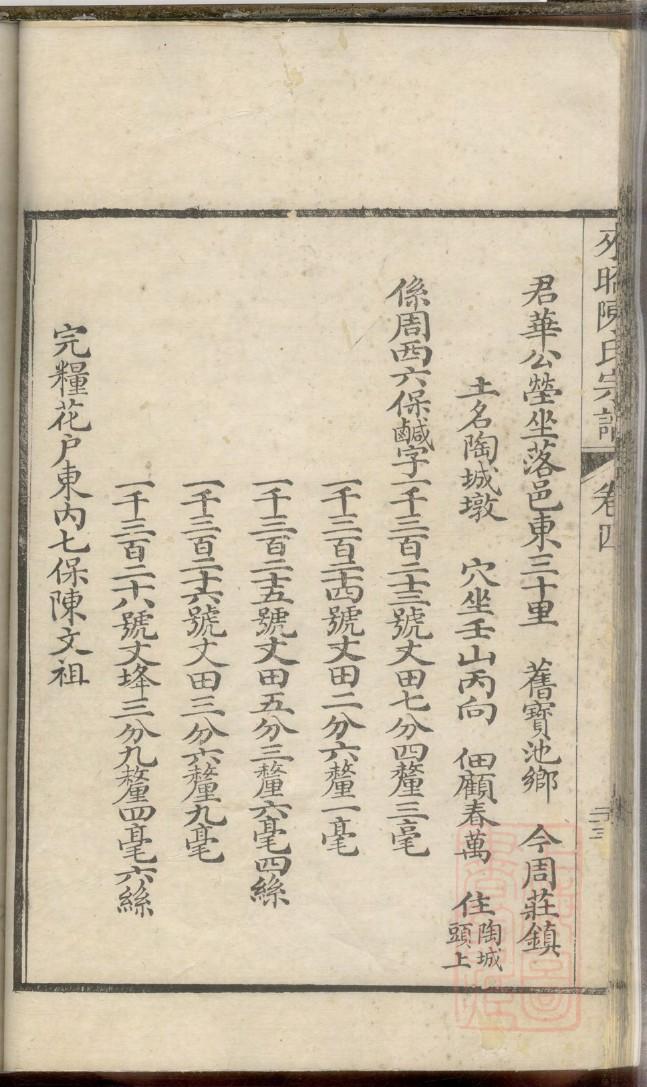 陳氏宗譜 卷四
君華公塋坐落邑東三十里 舊寶池鄉 今周莊鎮
土名陶城墩 穴坐壬山丙向 佃顧春萬 住陶城頭上
係周西六保鹹字一千三百二十三號丈田七分四釐三毫
一千三百二十四號丈田二分六釐一毫
一千三百二十五號丈田五分三釐六毫四絲
一千三百二十六號丈田三分六釐九毫
一千三百二十八號丈埄三分九釐四毫六絲
完糧花户東内七保陳文祖